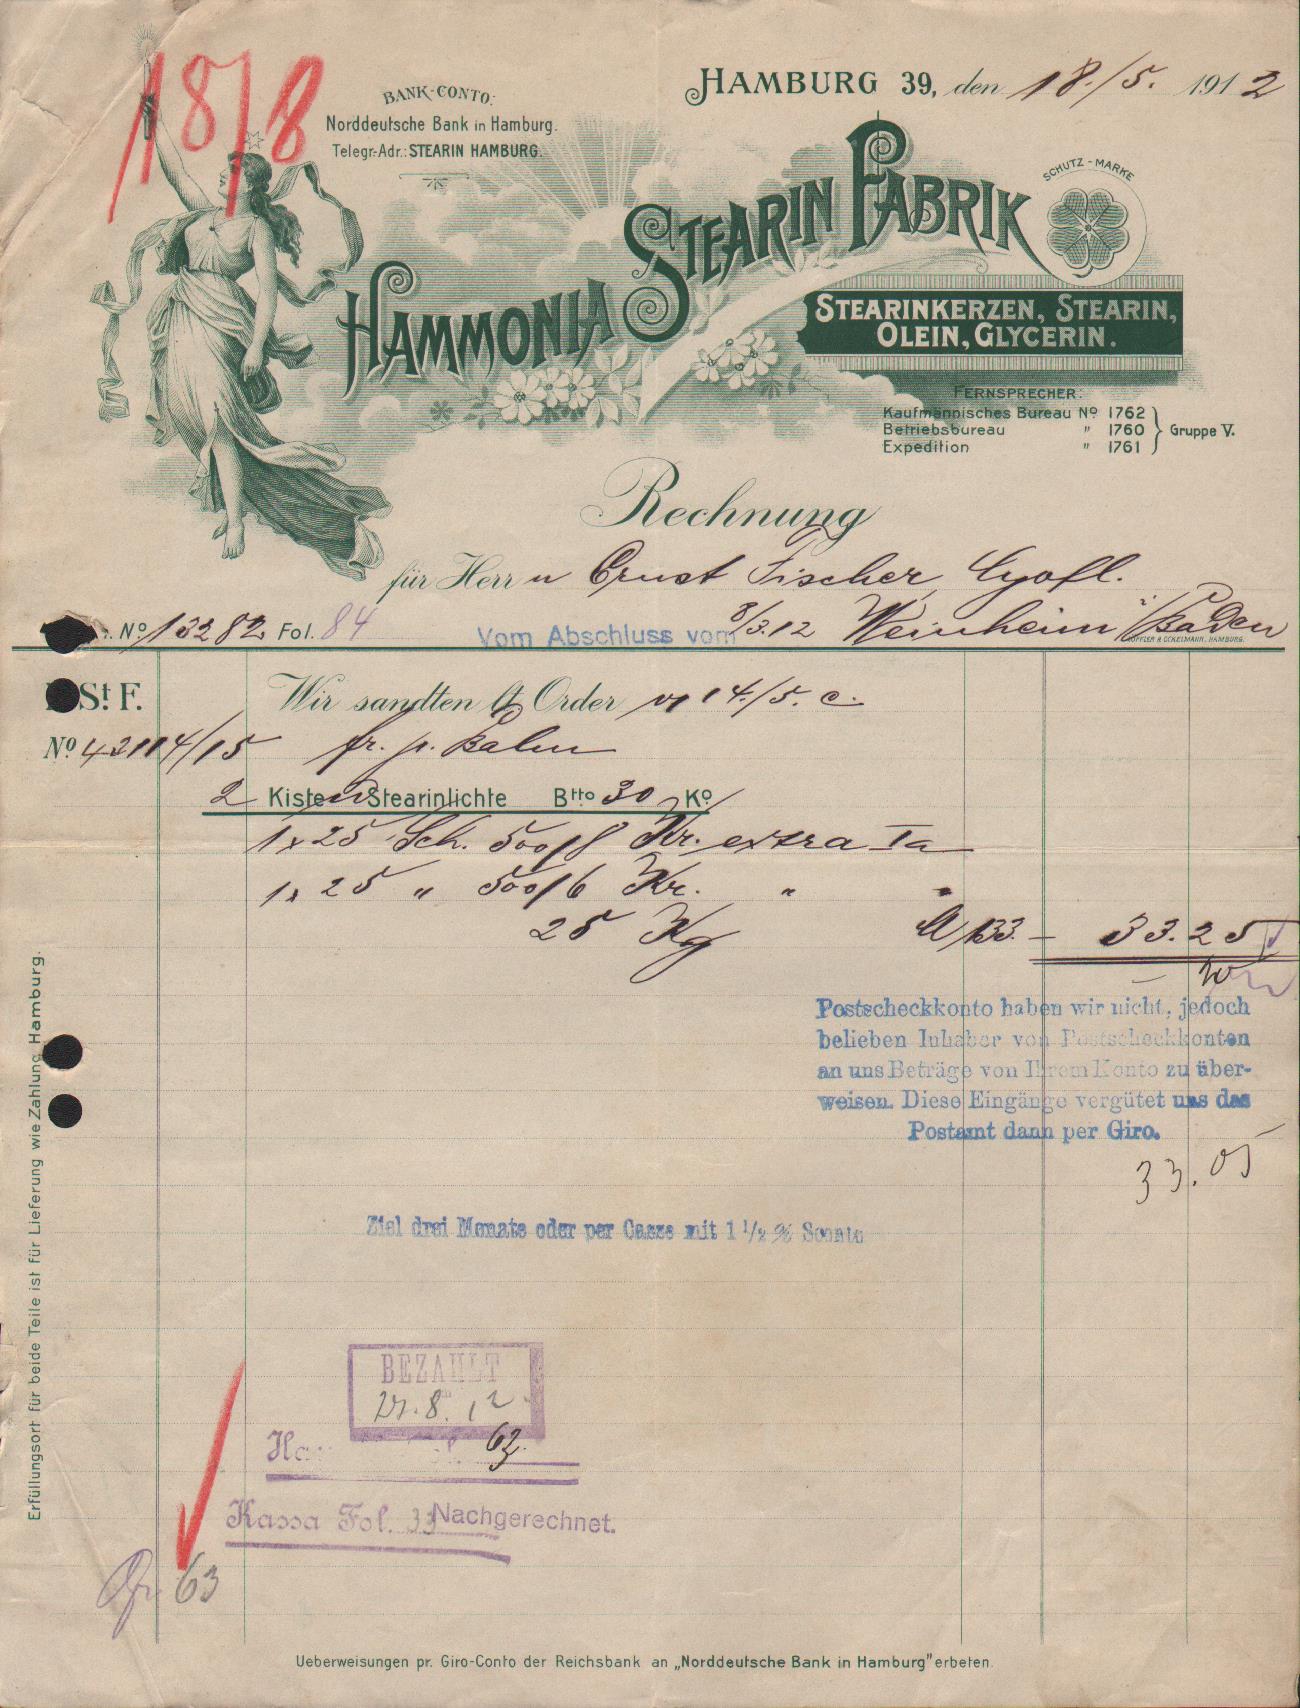 18/8
HAMBURG 39, den 18./5. 1912
BANK-CONTO:
Norddeutsche Bank in Hamburg.
Telegr.-Adr.: STEARIN HAMBURG.
SCHUTZ-MARKE
HAMMONIA STEARIN FABRIK
STEARINKERZEN, STEARIN,
OLEIN, GLYCERIN.
FERNSPRECHER:
Kaufmännisches Bureau No 1762
Betriebsbureau " 1760
Expedition " 1761
Gruppe V.
Rechnung
für Herrn Ernst Fischer,
No 13282 Fol. 84
Vom Abschluss vom 8/3.12 Weinheim i/Baden
St F. Wir sandten lt Order v 14./5. c.
No 42114/15 fr. p. Bahn
2 Kisten Stearinlichte Btto 30 Ko
1 x 25 Sch. 500/8 Kr. extra Ia
1 x 25 " 500/6 Kr. " "
25 Kg 133.— 33.25
Postscheckkonto haben wir nicht, jedoch
belieben Inhaber von Postscheckkonten
an uns Beträge von Ihrem Konto zu über-
weisen. Diese Eingänge vergütet uns das
Postamt dann per Giro.
33.05
Ziel drei Monate oder per Casse mit 1 1/2 % Sconto
BEZAHLT
8. 12
63
Kassa Fol. 33 Nachgerechnet.
63
Erfüllungsort für beide Teile ist für Lieferung wie Zahlung Hamburg.
Ueberweisungen pr. Giro-Conto der Reichsbank an „Norddeutsche Bank in Hamburg" erbeten.